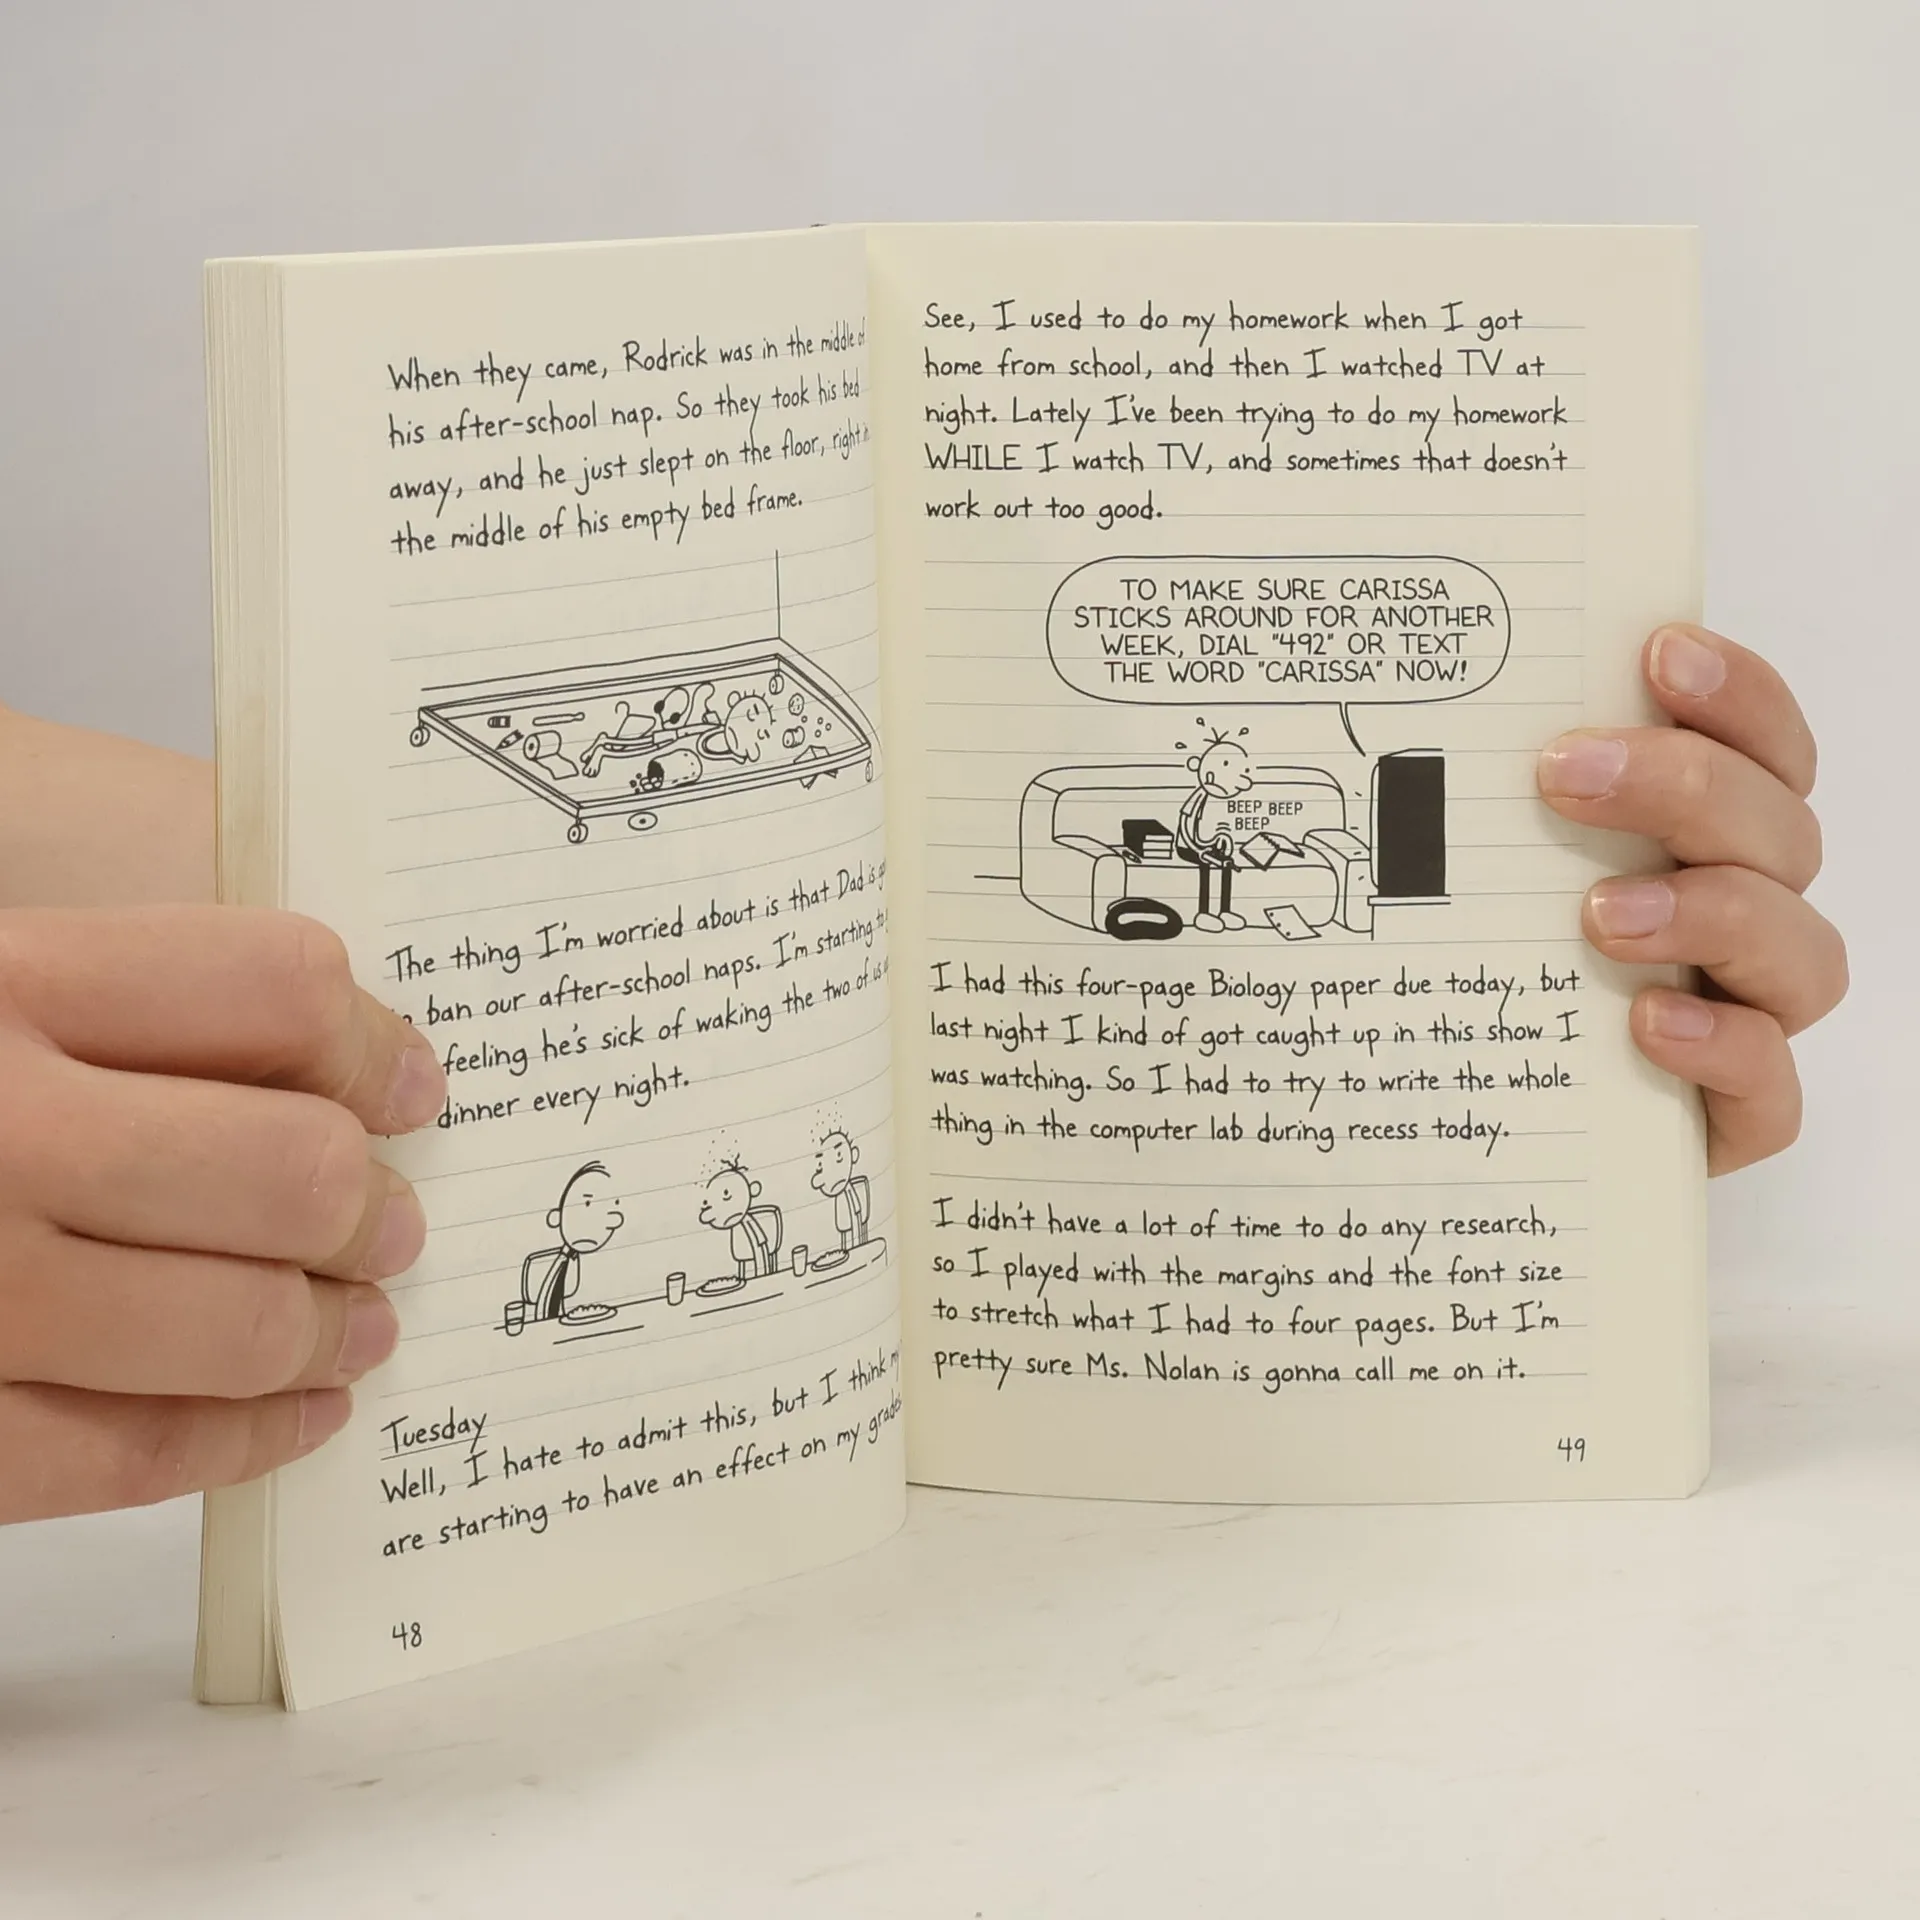 When they came, Rodrick was in the middle of
his after-school nap. So they took his bed
away, and he just slept on the floor, right in
the middle of his empty bed frame.
The thing I'm worried about is that Dad is
ban our after-school naps. I'm starting to
feeling he's sick of waking the two of us
dinner every night.
Tuesday
Well, I hate to admit this, but I think
are starting to have an effect on my grades
48
See, I used to do my homework when I got
home from school, and then I watched TV at
night. Lately I've been trying to do my homework
WHILE I watch TV, and sometimes that doesn't
work out too good.
TO MAKE SURE CARISSA
STICKS AROUND FOR ANOTHER
WEEK, DIAL "492" OR TEXT
THE WORD "CARISSA" NOW!
BEEP BEEP
BEEP
I had this four-page Biology paper due today, but
last night I kind of got caught up in this show I
was watching. So I had to try to write the whole
thing in the computer lab during recess today.
I didn't have a lot of time to do any research,
so I played with the margins and the font size
to stretch what I had to four pages. But I'm
pretty sure Ms. Nolan is gonna call me on it.
49